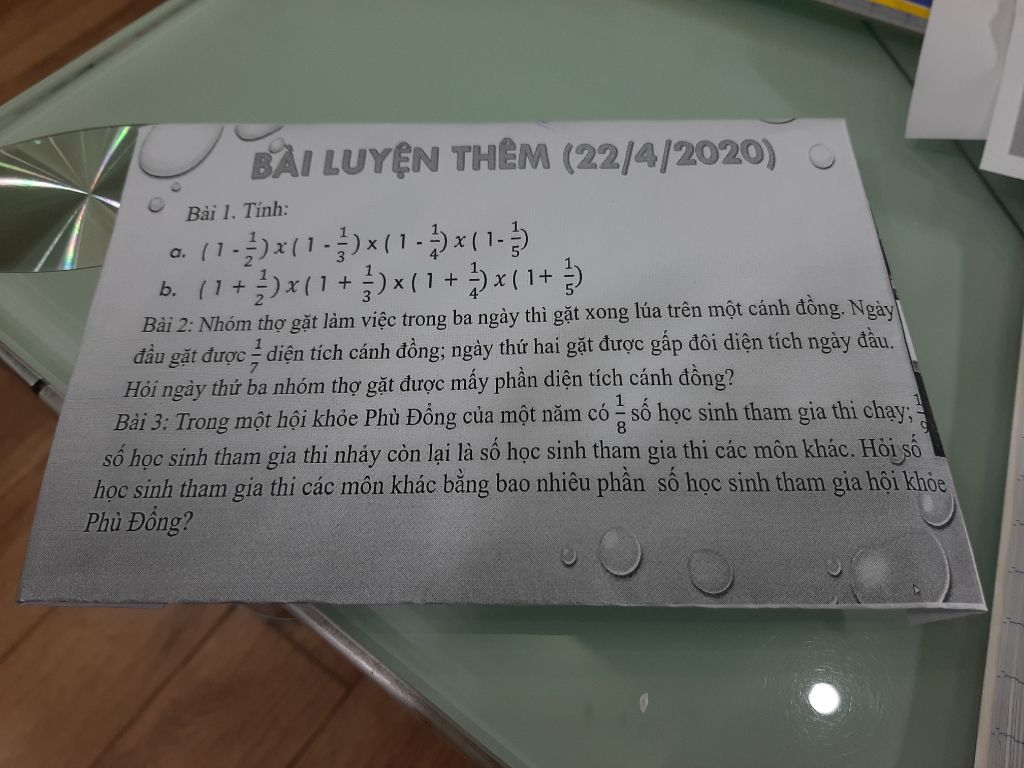 BÀI LUYỆN THÊM (22/4/2020)
Bài 1. Tính:
a. ( 1 - 1/2 ) x ( 1 - 1/3 ) x ( 1 - 1/4 ) x ( 1- 1/5 )
b. ( 1 + 1/2 ) x ( 1 + 1/3 ) x ( 1 + 1/4 ) x ( 1+ 1/5 )
Bài 2: Nhóm thợ gặt làm việc trong ba ngày thì gặt xong lúa trên một cánh đồng. Ngày
đầu gặt được 1/7 diện tích cánh đồng; ngày thứ hai gặt được gấp đôi diện tích ngày đầu.
Hỏi ngày thứ ba nhóm thợ gặt được mấy phần diện tích cánh đồng?
Bài 3: Trong một hội khỏe Phù Đổng của một năm có 1/8 số học sinh tham gia thi chạy; 1/9
số học sinh tham gia thi nhảy còn lại là số học sinh tham gia thi các môn khác. Hỏi số
học sinh tham gia thi các môn khác bằng bao nhiêu phần số học sinh tham gia hội khỏe
Phù Đổng?